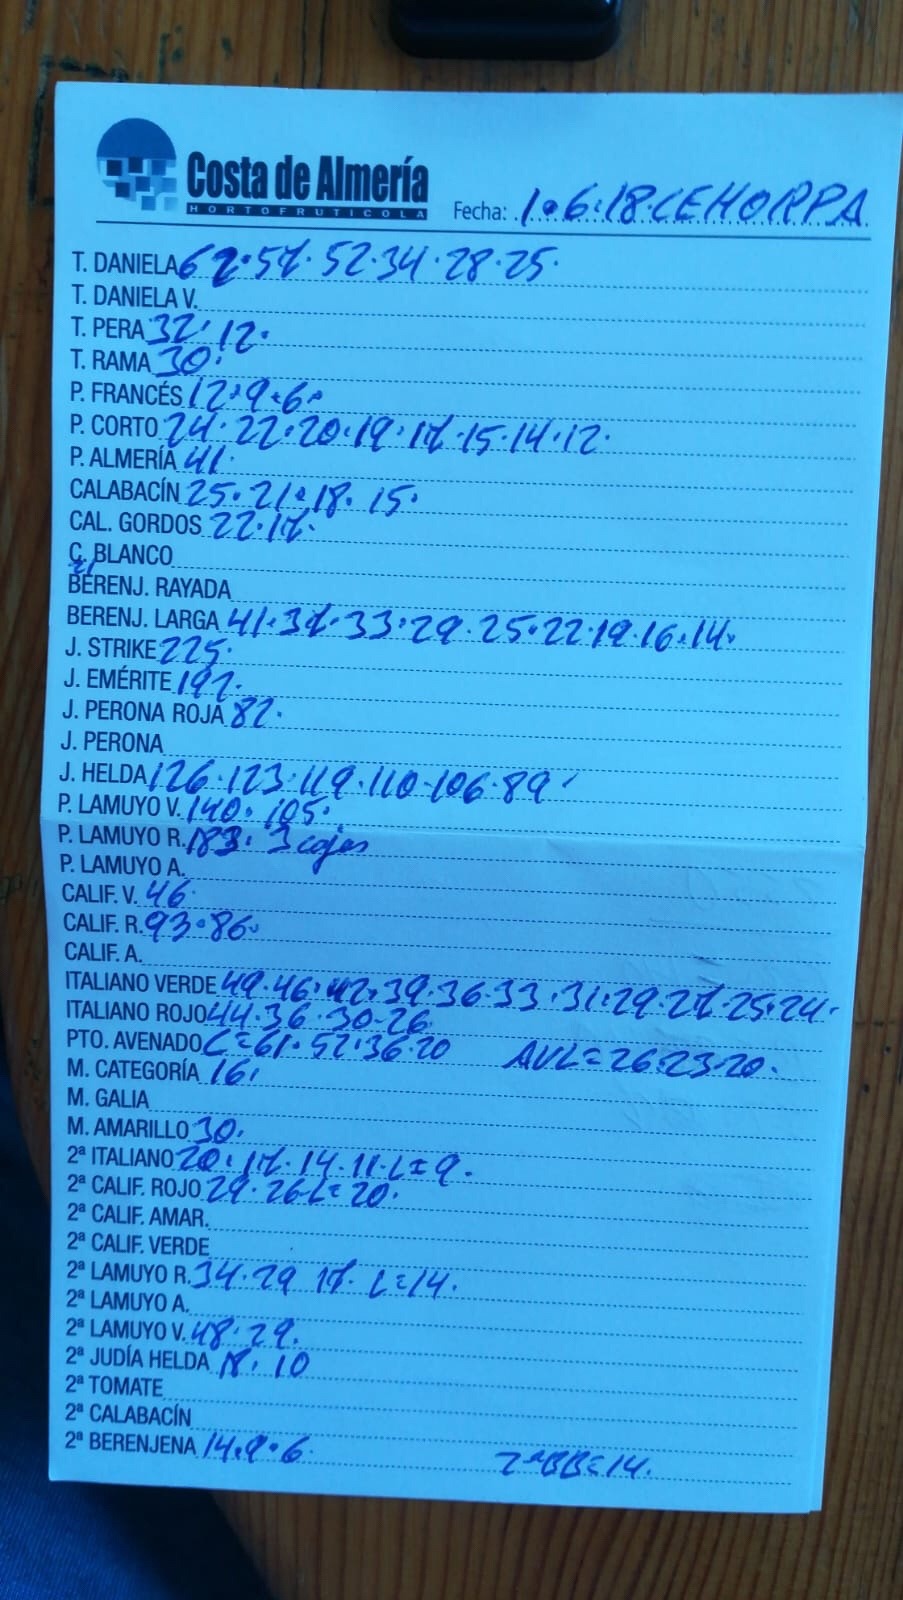 Costa de Almería
HORTOFRUTICOLA
Fecha: 1.6.18.CEHORPA
T. DANIELA 62.57.52.34.28.25.
T. DANIELA V.
T. PERA 32.12.
T. RAMA 30.
P. FRANCÉS 12.9.6.
P. CORTO 24.22.20.19.17.15.14.12.
P. ALMERÍA 41.
CALABACÍN 25.21.18.15.
CAL. GORDOS 22.17.
C. BLANCO
BERENJ. RAYADA
BERENJ. LARGA 41.37.33.29.25.22.19.16.14.
J. STRIKE 225.
J. EMÉRITE 192.
J. PERONA ROJA 82.
J. PERONA
J. HELDA 126.123.119.110.106.89.
P. LAMUYO V. 140.105.
P. LAMUYO R. 183. 3 cajas
P. LAMUYO A.
CALIF. V. 46.
CALIF. R. 93.86.
CALIF. A.
ITALIANO VERDE 49.46.42.39.36.33.31.29.27.25.24.
ITALIANO ROJO 44.36.30.26.
PTO. AVENADO C=61.52.36.20 AVL=26.23.20.
M. CATEGORÍA 16.
M. GALIA
M. AMARILLO 30.
2ª ITALIANO 20.17.14.11.L=9.
2ª CALIF. ROJO 29.26.L=20.
2ª CALIF. AMAR.
2ª CALIF. VERDE
2ª LAMUYO R. 34.29 17. L=14.
2ª LAMUYO A.
2ª LAMUYO V. 48.29.
2ª JUDÍA HELDA 18.10
2ª TOMATE
2ª CALABACÍN
2ª BERENJENA 14.9.6. 2ªBB=14.